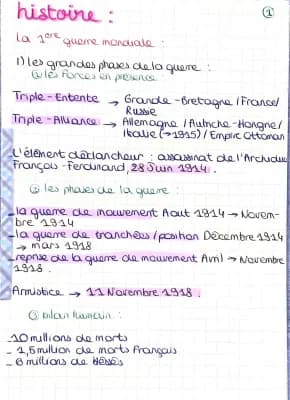 histoire :
①
La 1ère guerre mondiale :
1) les grandes phases de la guerre :
① les forces en présence :
Triple-Entente → Grande-Bretagne / France /
Russie
Triple-Alliance → Allemagne / Autriche-Hongrie /
Italie (→1915) / Empire Ottoman
L'élément déclancheur : assassinat de l'Archiduc
François-Ferdinand, 28 Juin 1914.
② les phases de la guerre :
_la guerre de mouvement Aout 1914 → Novem-
bre 1914
_la guerre de tranchées / position Décembre 1914
→ mars 1918
_reprise de la guerre de mouvement Avril → Novembre
1918.
Armistice → 11 Novembre 1918.
③ bilan humain :
_10 millions de morts
_ 1,5 million de morts Français
_ 6 millions de blessés